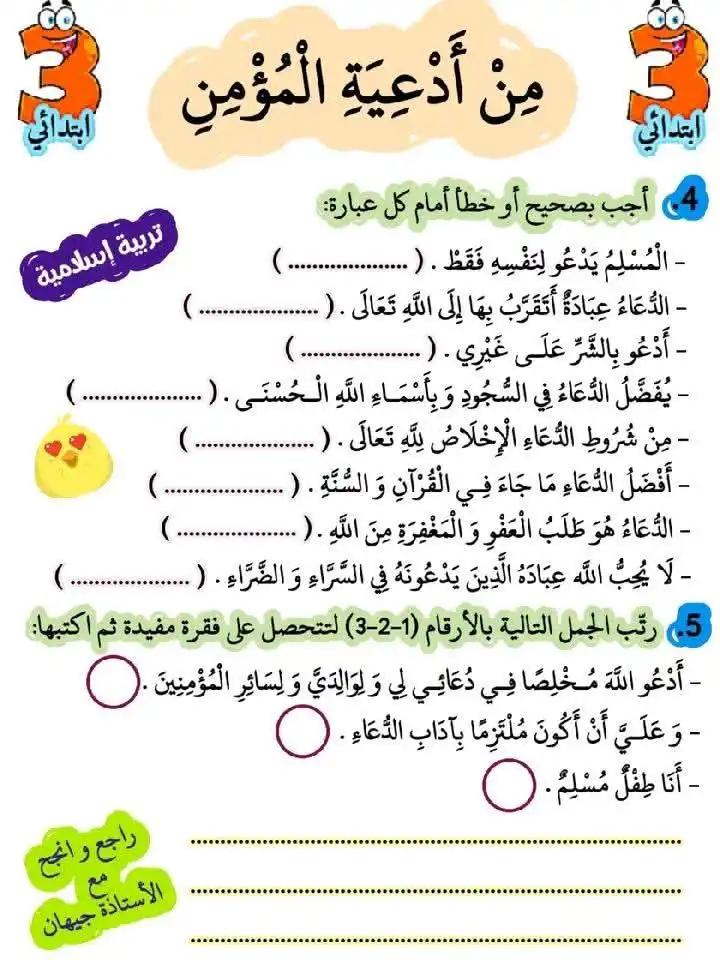 3 ابتدائي
مِنْ أَدْعِيَةِ الْمُؤْمِنِ
3 ابتدائي
4. أجب بصحيح أو خطأ أمام كل عبارة:
تربية إسلامية
- الْمُسْلِمُ يَدْعُو لِنَفْسِهِ فَقَطْ . ( .................... )
- الدُّعَاءُ عِبَادَةٌ أَتَقَرَّبُ بِهَا إِلَى اللَّهِ تَعَالَى . ( .................... )
- أَدْعُو بِالشَّرِّ عَلَــى غَيْرِي . ( .................... )
- يُفَضَّلُ الدُّعَاءُ فِي السُّجُودِ وَ بِأَسْمَــاءِ اللَّهِ الْــحُسْنَــى . ( .................... )
- مِنْ شُرُوطِ الدُّعَاءِ الْإِخْلَاصُ لِلَّهِ تَعَالَى . ( .................... )
- أَفْضَلُ الدُّعَاءِ مَا جَاءَ فِــي الْقُرْآنِ وَ السُّنَّةِ . ( .................... )
- الدُّعَاءُ هُوَ طَلَبُ الْعَفْوِ وَ الْمَغْفِرَةِ مِنَ اللَّهِ . ( .................... )
- لَا يُحِبُّ اللَّه عِبَادَهُ الَّذِينَ يَدْعُونَهُ فِي السَّرَّاءِ وَ الضَّرَّاءِ . ( .................... )
5. رتّب الجمل التالية بالأرقام (1-2-3) لتتحصل على فقرة مفيدة ثم اكتبها:
- أَدْعُو اللَّهَ مُــخْلِصًا فِــي دُعَائِــي لِي وَ لِوَالِدَيَّ وَ لِسَائِرِ الْمُؤْمِنِينَ .
- وَ عَلَــيَّ أَنْ أَكُونَ مُلْتَزِمًا بِآدَابِ الدُّعَاءِ .
- أَنَا طِفْلٌ مُسْلِمٌ .
راجع و انجح
مع
الأستاذة جيهان